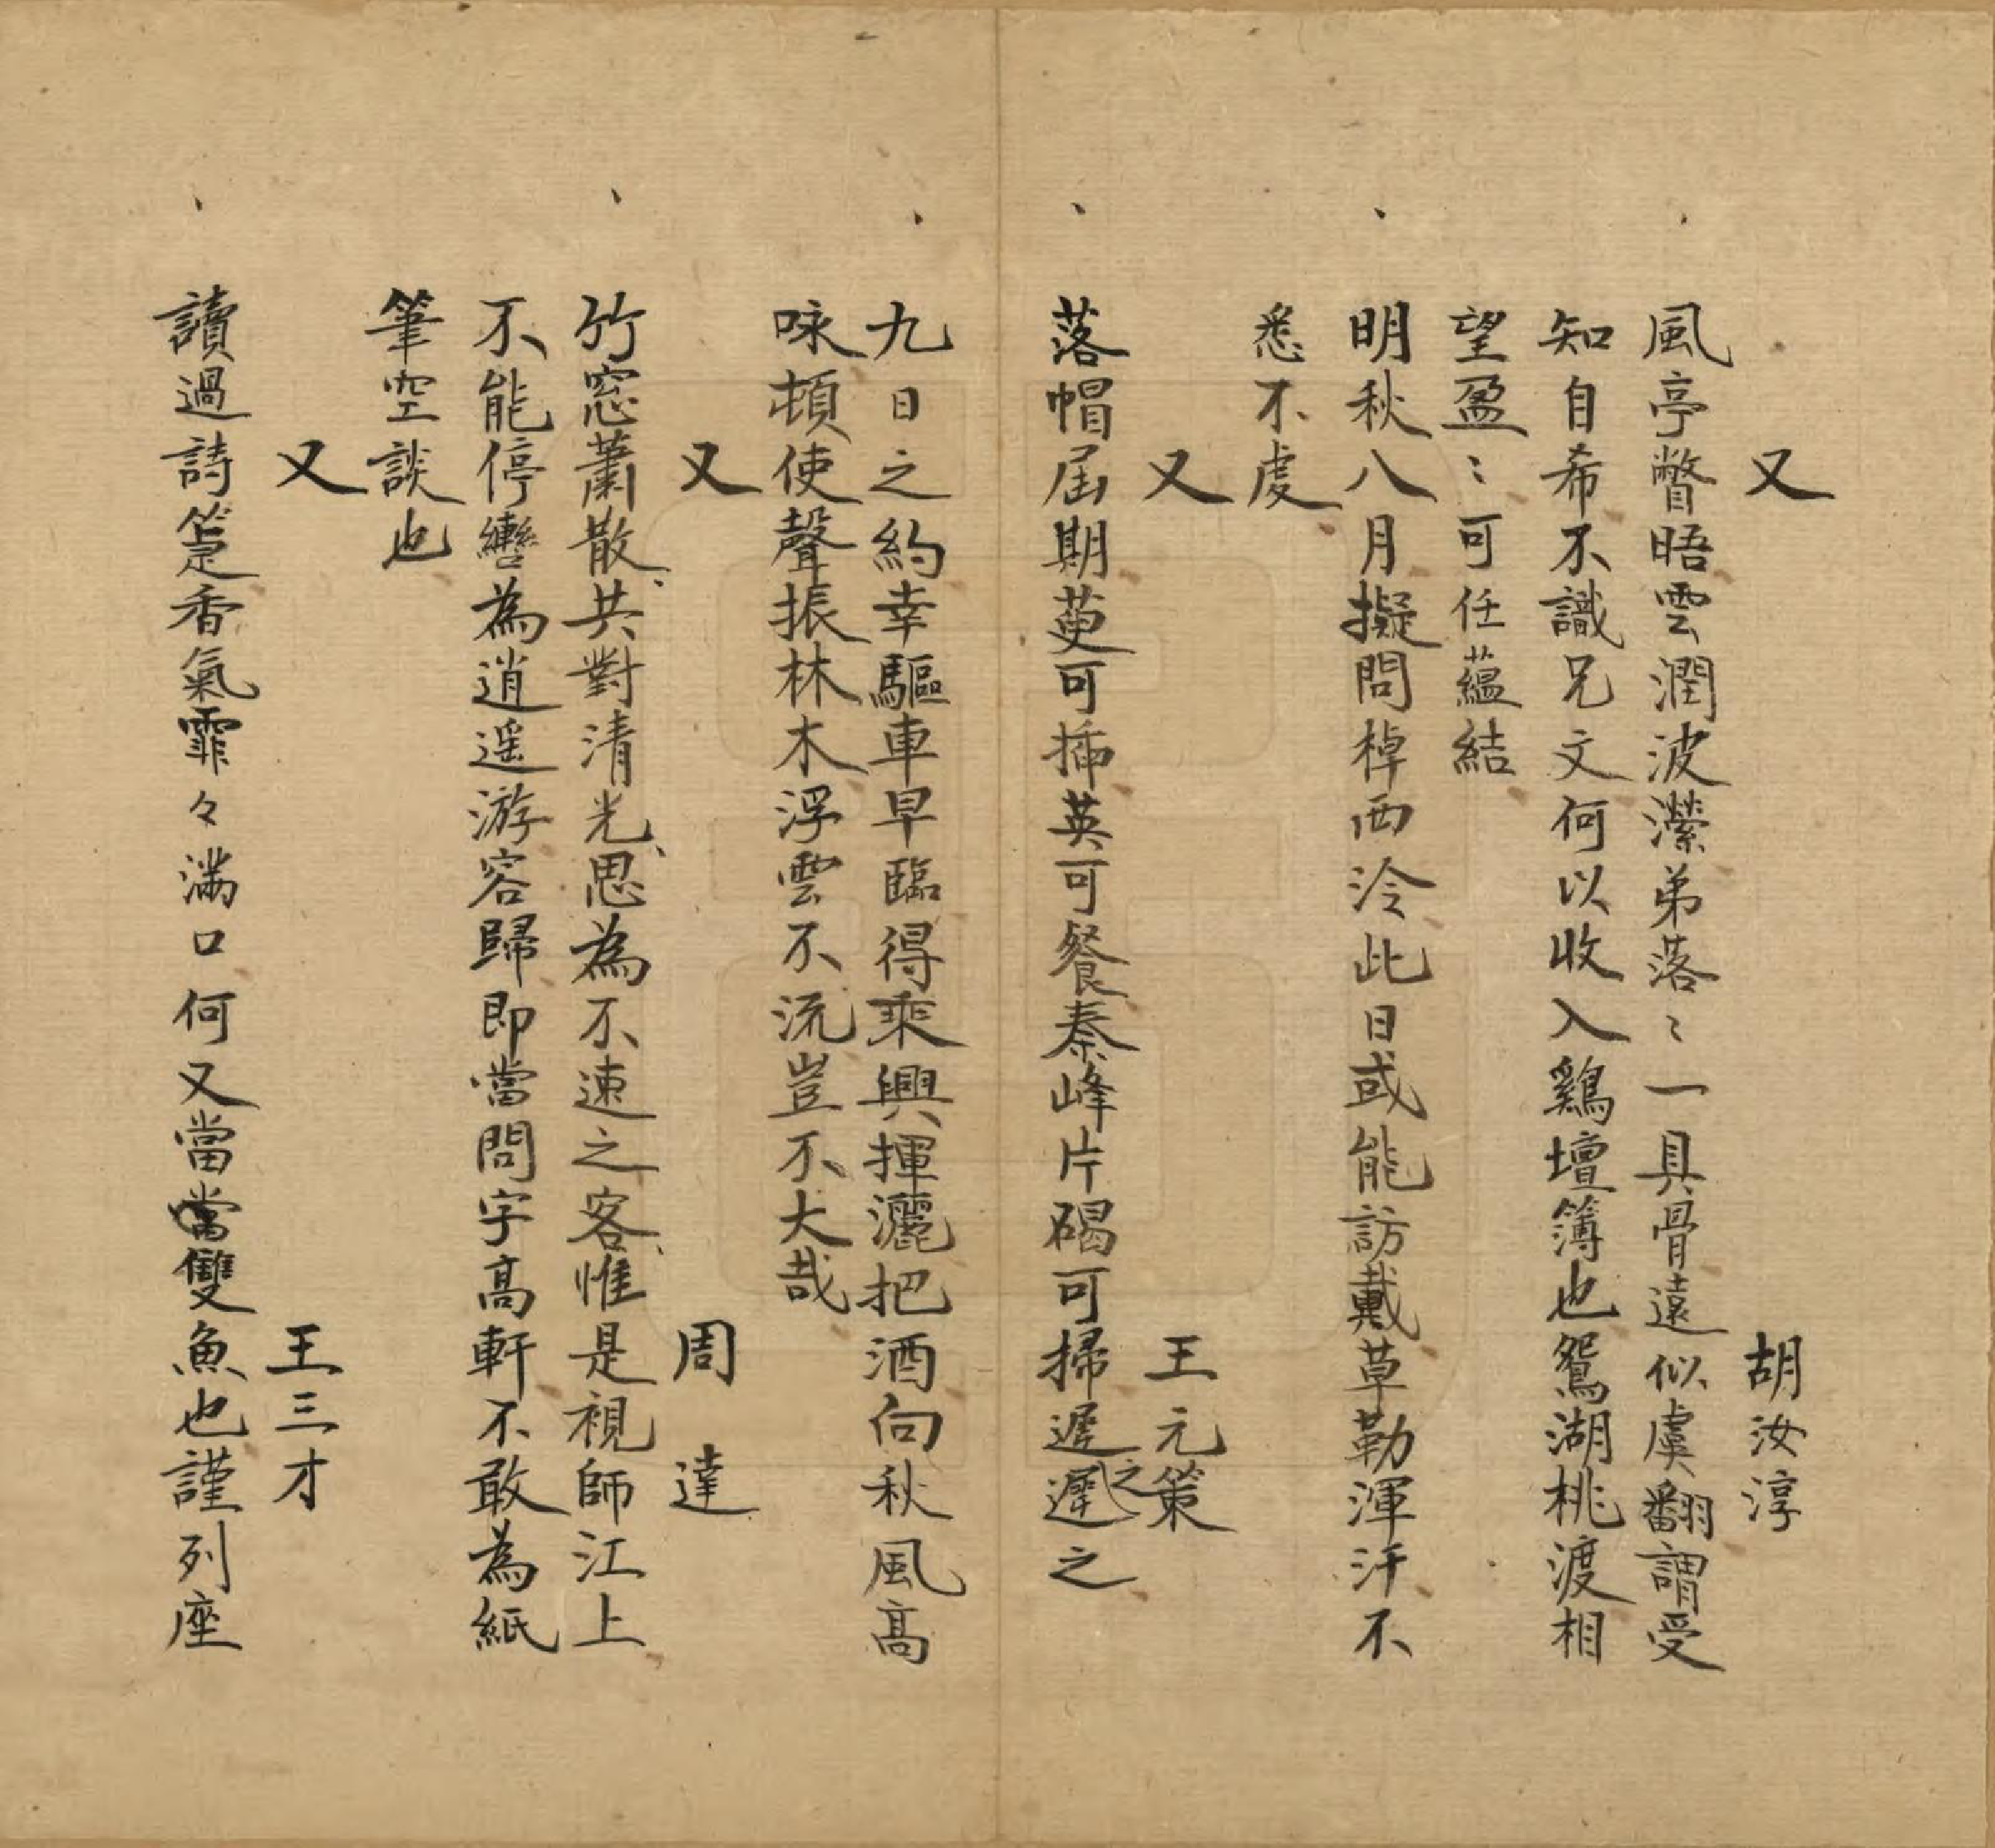 又 胡汝淳
風亭瞥晤雲潤波瀠弟落〻一具骨遠似虞翻謂受
知自希不識兄文何以收入鷄壇簿也鴛湖桃渡相
望盈〻可任蘊結
明秋八月擬問棹西泠此日或能訪戴草勒渾汗不
悉不虔
又 王元策
落帽屆期萸可插英可餐秦峰片碣可掃遲之遲之
九日之約幸驅車早臨得乘興揮灑把酒向秋風高
咏頓使聲振林木浮雲不流豈不大哉
又 周達
竹窓蕭散共對清光思為不速之客惟是視師江上
不能停轡為逍遥游容歸即當問字高軒不敢為紙
筆空談也
又 王三才
讀過詩箑香氣霏々滿口何又當當雙魚也謹列座